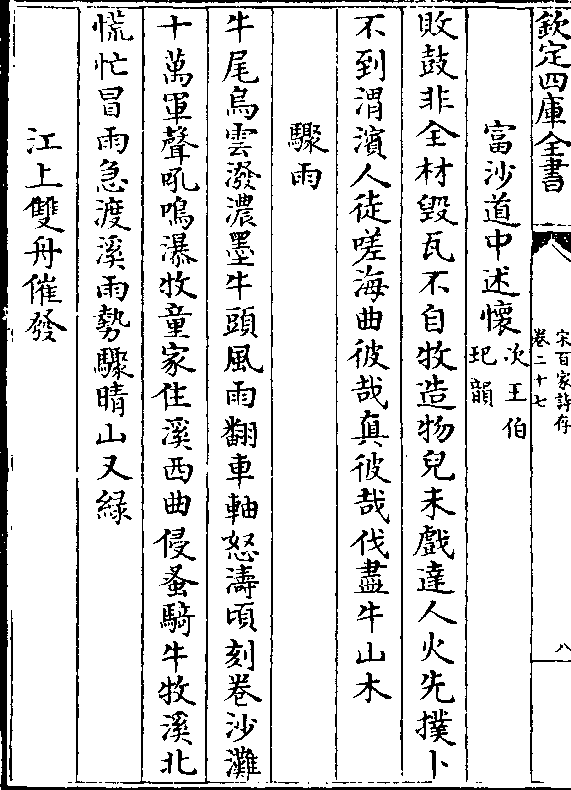 欽定四庫全書
宋百家詩存
卷二十七
八
富沙道中述懷
次王伯
玘韻
敗鼓非全材毀瓦不自牧造物兒未戲達人火先撲卜
不到渭濱人徒嗟海曲彼哉真彼哉伐盡牛山木
驟雨
牛尾烏雲潑濃墨牛頭風雨翻車軸怒濤頃刻卷沙灘
十萬軍聲吼鳴瀑牧童家住溪西曲侵蚤騎牛牧溪北
慌忙冒雨急渡溪雨勢驟晴山又綠
江上雙舟催發